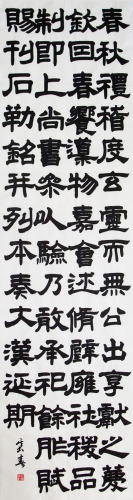 春秋禮稽度玄靈而無公出享獻之薦
欽因春饗導物嘉會述脩璧廱社稷品
制即上尚書參以驗乃敢承祀餘胙賦
賜刊石勒銘并列本奏大漢延期